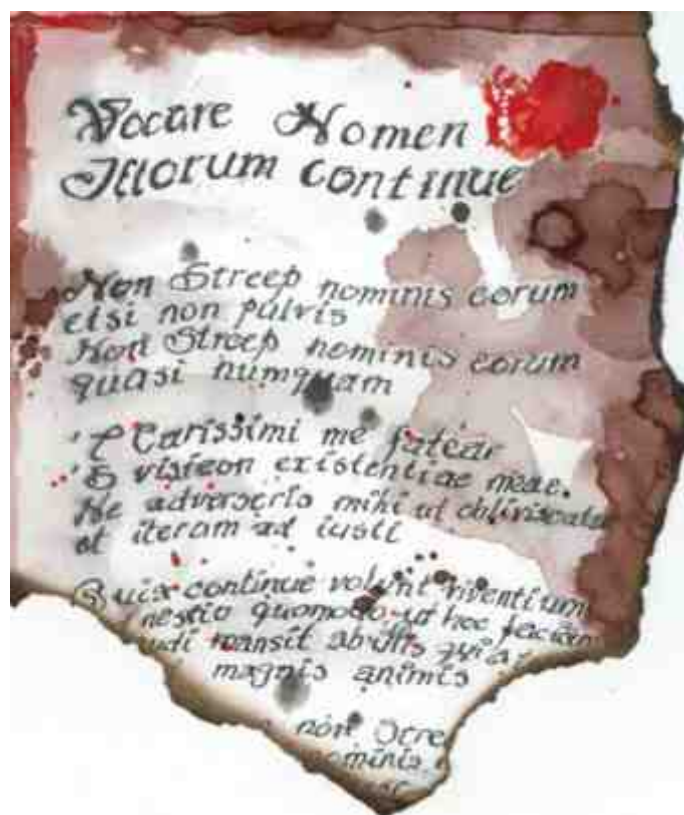 Vocare Nomen
Illorum continue
Non Streep nominis eorum
etsi non pulvis
Non Streep nominis eorum
quasi numquam
Carissimi me fatear
existentiae meae.
Ne mihi ut
et iteram ad iusti
continue volunt viventium
nestio quomodo ut hoc
mansit ab illis
magnis animis
non
nominis